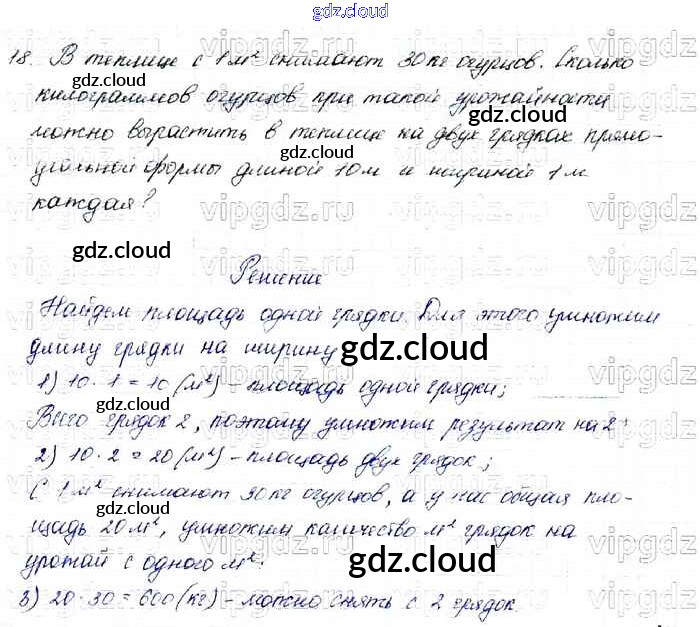 gdz.cloud
18. В теплице с 1 м² снимают 30 кг огурцов. Сколько
килограммов огурцов при такой урожайности
можно вырастить в теплице на двух грядках прямо-
угольной формы длиной 10 м и шириной 1 м
каждая?
Решение
Найдем площадь одной грядки. Для этого умножим
длину грядки на ширину
1) 10 · 1 = 10 (м²) – площадь одной грядки;
Всего грядок 2, поэтому умножим результат на 2:
2) 10 · 2 = 20 (м²) – площадь двух грядок;
С 1 м² снимают 30 кг огурцов, а у нас общая пло-
щадь 20 м², умножим количество м² грядок на
урожай с одного м²:
3) 20 · 30 = 600 (кг) – можно снять с 2 грядок.